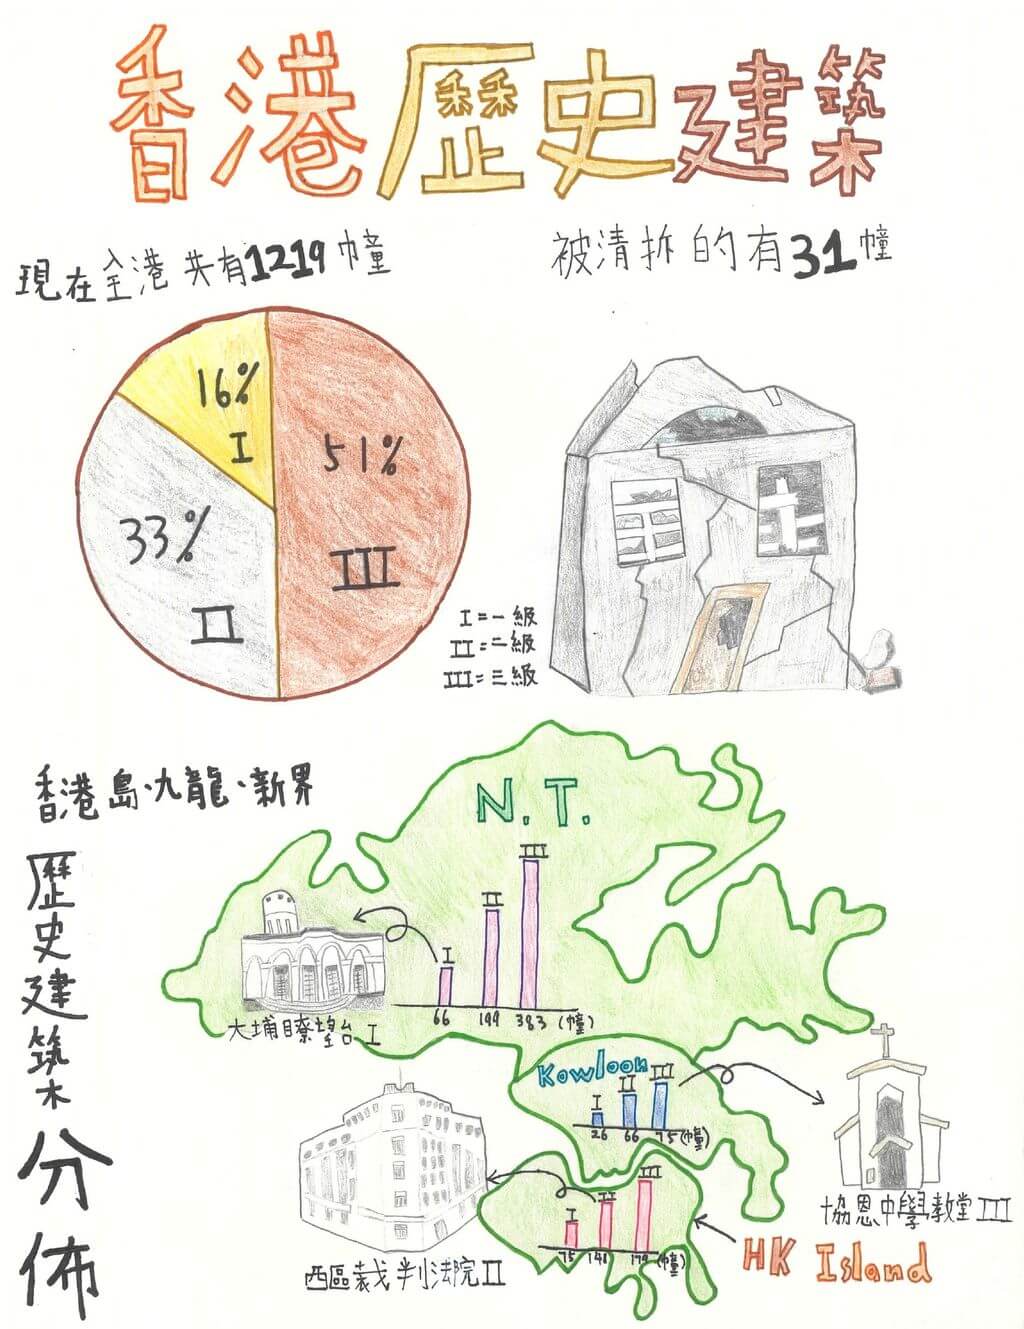 香港歷史建築
現在全港共有1219幢
被清拆的有31幢
16%
I
51%
III
33%
II
I=一級
II=二級
III=三級
香港島·九龍·新界
歷史建築分佈
N.T.
I
II
III
66 199 383 (幢)
大埔瞭望台 I
Kowloon
I
II
III
26 66 75 (幢)
協恩中學教堂 III
I
II
III
75 148 179 (幢)
西區裁判法院 II
HK Island